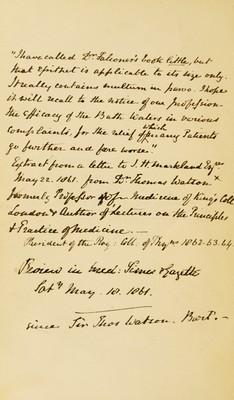 "I have called Dr. Falconer's book little, but
that epithet is applicable to its size only.
It really contains multum in parvo. I hope
it will recall to the notice of our profession
the efficacy of the Bath Waters in various
Complaints, for the relief of which many Patients
go further and fare worse."
Extract from a letter to J. H. Markland Esqre
May 22. 1861. from Dr. Thomas Watson x
formerly Professor of Medicine of King's Coll:
London & Author of Lectures on the Principles
& Practice of Medicine.—
President of the Roy: Coll. of Phyns 1862-63.64
Review in Med: Times & Gazette
Saty May. 18. 1861.
since Sir Thos Watson. Bart.—